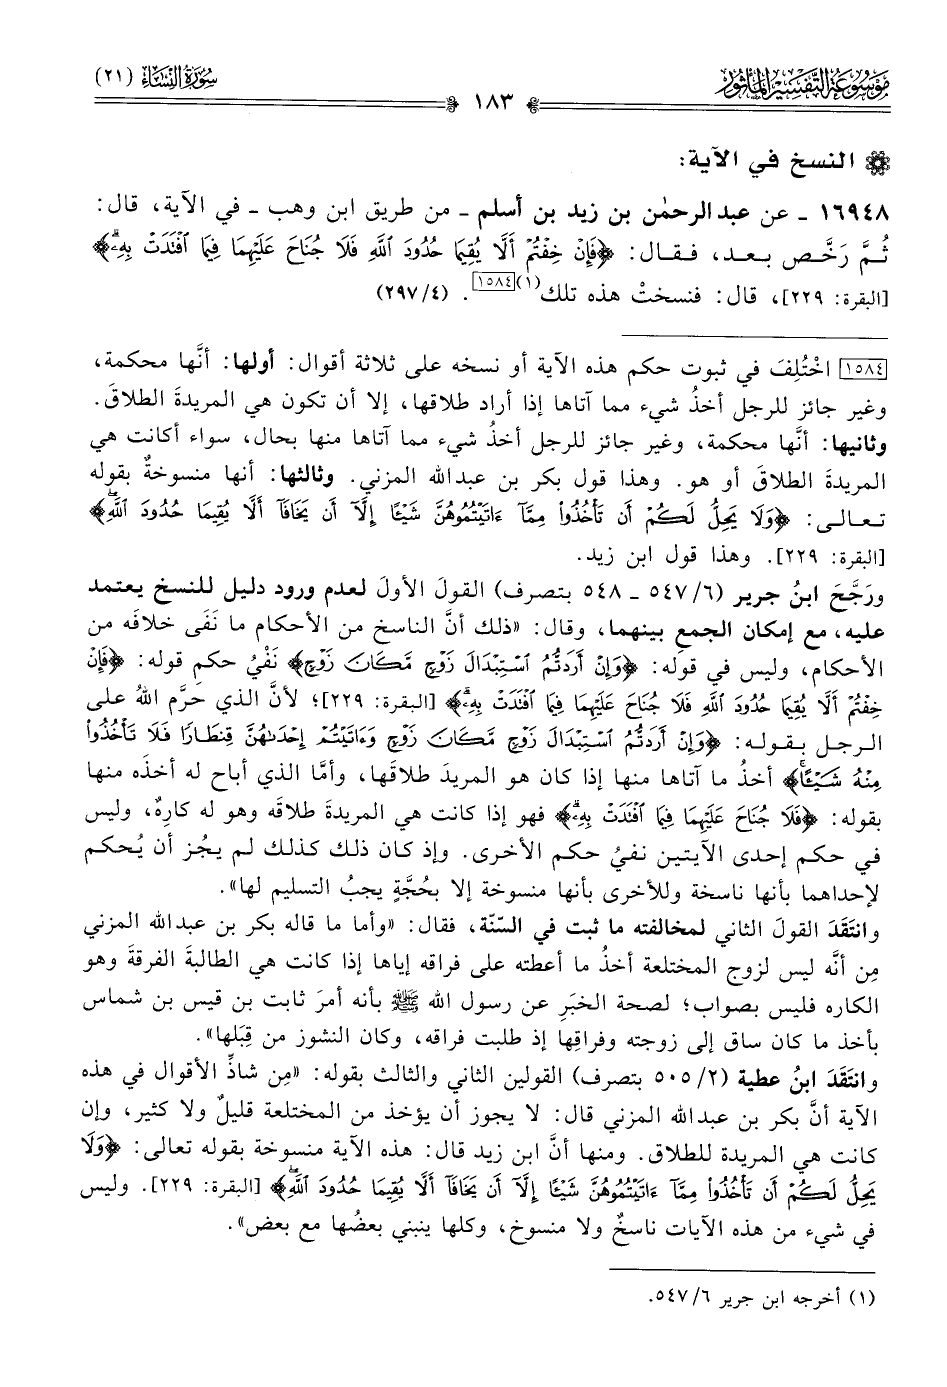 موسوعة التفسير المأثور
سورة النساء (٢١)
١٨٣
النسخ في الآية:
١٦٩٤٨ ـ عن عبدالرحمٰن بن زيد بن أسلم ـ من طريق ابن وهب ـ في الآية، قال:
ثُمَّ رَخَّص بعد، فقال: ﴿فَإِنْ خِفْتُمْ أَلَّا يُقِيمَا حُدُودَ اللَّهِ فَلَا جُنَاحَ عَلَيْهِمَا فِيمَا افْتَدَتْ بِهِۦ﴾
[البقرة: ٢٢٩]، قال: فنسختْ هذه تلك(١)[١٥٨٤]. (٤/٢٩٧)
[١٥٨٤] اخْتُلِفَ في ثبوت حكم هذه الآية أو نسخه على ثلاثة أقوال: أولها: أنَّها محكمة،
وغير جائز للرجل أخذُ شيء مما آتاها إذا أراد طلاقها، إلا أن تكون هي المريدةَ الطلاقَ.
وثانيها: أنَّها محكمة، وغير جائز للرجل أخذُ شيء مما آتاها منها بحال، سواء أكانت هي
المريدةَ الطلاقَ أو هو. وهذا قول بكر بن عبدالله المزني. وثالثها: أنها منسوخةٌ بقوله
تعالى: ﴿وَلَا يَحِلُّ لَكُمْ أَن تَأْخُذُوا مِمَّآ ءَاتَيْتُمُوهُنَّ شَيْئًا إِلَّآ أَن يَخَافَآ أَلَّا يُقِيمَا حُدُودَ اللَّهِ﴾
[البقرة: ٢٢٩]. وهذا قول ابن زيد.
ورَجَّحَ ابنُ جرير (٦/٥٤٧ ـ ٥٤٨ بتصرف) القولَ الأولَ لعدم ورود دليل للنسخ يعتمد
عليه، مع إمكان الجمع بينهما، وقال: «ذلك أنَّ الناسخ من الأحكام ما نَفَى خلافه من
الأحكام، وليس في قوله: ﴿وَإِنْ أَرَدتُّمُ اسْتِبْدَالَ زَوْجٍ مَّكَانَ زَوْجٍ﴾ نَفْيُ حكمِ قوله: ﴿فَإِنْ
خِفْتُمْ أَلَّا يُقِيمَا حُدُودَ اللَّهِ فَلَا جُنَاحَ عَلَيْهِمَا فِيمَا افْتَدَتْ بِهِۦ﴾ [البقرة: ٢٢٩]؛ لأنَّ الذي حرَّم اللهُ على
الرجل بقوله: ﴿وَإِنْ أَرَدتُّمُ اسْتِبْدَالَ زَوْجٍ مَّكَانَ زَوْجٍ وَءَاتَيْتُمْ إِحْدَىٰهُنَّ قِنطَارًا فَلَا تَأْخُذُوا
مِنْهُ شَيْئًا﴾ أخذُ ما آتاها منها إذا كان هو المريدَ طلاقَها، وأمَّا الذي أباح له أخذَه منها
بقوله: ﴿فَلَا جُنَاحَ عَلَيْهِمَا فِيمَا افْتَدَتْ بِهِۦ﴾ فهو إذا كانت هي المريدةَ طلاقَه وهو له كارِهٌ، وليس
في حكم إحدى الآيتين نفيُ حكم الأخرى. وإذ كان ذلك كذلك لم يجُز أن يُحكم
لإحداهما بأنها ناسخة وللأخرى بأنها منسوخة إلا بحُجَّةٍ يجبُ التسليم لها».
وانتَقَدَ القولَ الثاني لمخالفته ما ثبت في السّنّة، فقال: «وأما ما قاله بكر بن عبدالله المزني
مِن أنَّه ليس لزوج المختلعة أخذُ ما أعطته على فراقه إياها إذا كانت هي الطالبةَ الفرقةَ وهو
الكاره فليس بصواب؛ لصحة الخبَرِ عن رسول الله ﷺ بأنه أمرَ ثابت بن قيس بن شماس
بأخذ ما كان ساق إلى زوجته وفراقِها إذ طلبت فراقه، وكان النشوز من قِبَلها».
وانتَقَدَ ابنُ عطية (٢/٥٠٥ بتصرف) القولين الثاني والثالث بقوله: «مِن شاذِّ الأقوال في هذه
الآية أنَّ بكر بن عبدالله المزني قال: لا يجوز أن يؤخذ من المختلعة قليلٌ ولا كثير، وإن
كانت هي المريدة للطلاق. ومنها أنَّ ابن زيد قال: هذه الآية منسوخة بقوله تعالى: ﴿وَلَا
يَحِلُّ لَكُمْ أَن تَأْخُذُوا مِمَّآ ءَاتَيْتُمُوهُنَّ شَيْئًا إِلَّآ أَن يَخَافَآ أَلَّا يُقِيمَا حُدُودَ اللَّهِ﴾ [البقرة: ٢٢٩]. وليس
في شيء من هذه الآيات ناسخٌ ولا منسوخ، وكلها ينبني بعضُها مع بعض».
(١) أخرجه ابن جرير ٦/٥٤٧.